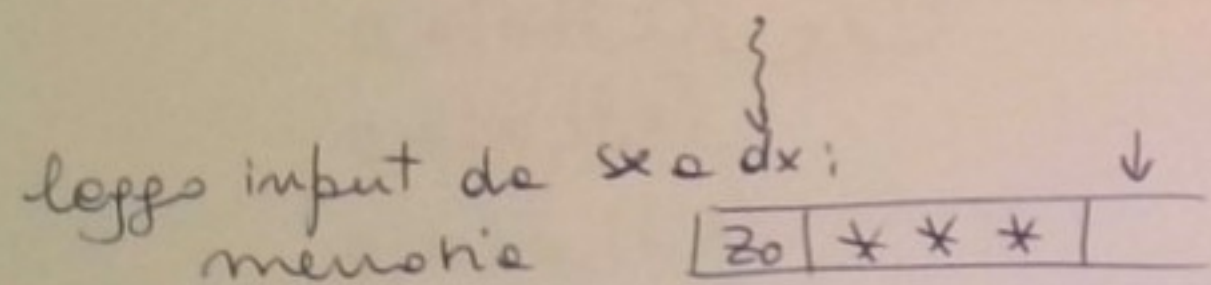 leggo input da sx a dx:
memoria Z0 * * *